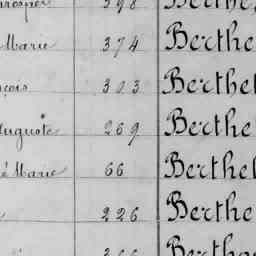 Prosper 398 Berthe
Marie 374 Berthe
çois 303 Berthel
Auguste 269 Berthe
é Marie 66 Berthel
226 Berthe
Berthe